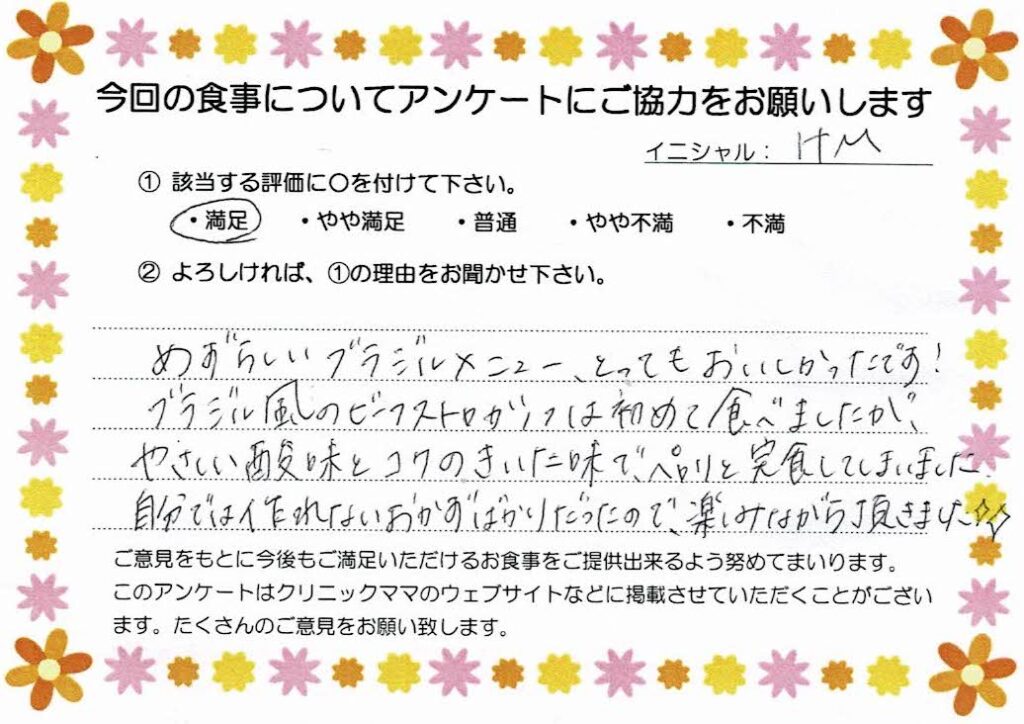 今回の食事についてアンケートにご協力をお願いします
イニシャル： H M
① 該当する評価に〇を付けて下さい。
・満足 ・やや満足 ・普通 ・やや不満 ・不満
② よろしければ、①の理由をお聞かせ下さい。
めずらしいブラジルメニュー、とってもおいしかったです！
ブラジル風のビーフストロガノフは初めて食べましたが、
やさしい酸味とコクのきいた味で、ペロリと完食してしまいました
自分では作れないおかずばかりだったので、楽しみながら頂きました☆☆
ご意見をもとに今後もご満足いただけるお食事をご提供出来るよう努めてまいります。
このアンケートはクリニックママのウェブサイトなどに掲載させていただくことがござい
ます。たくさんのご意見をお願い致します。